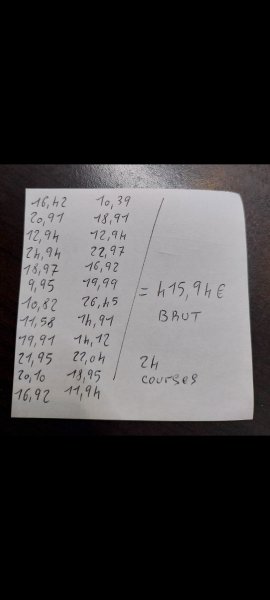 16,42 10,39
20,91 18,91
12,94 12,94
24,94 22,97
18,97 16,92
9,95 19,99
10,82 26,45
11,58 14,91
19,91 14,12
21,95 22,04
20,10 18,95
16,92 11,94
= 415,94 €
BRUT
24
courses